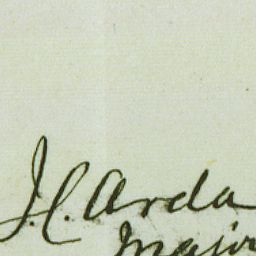 J. C. Arda
Major